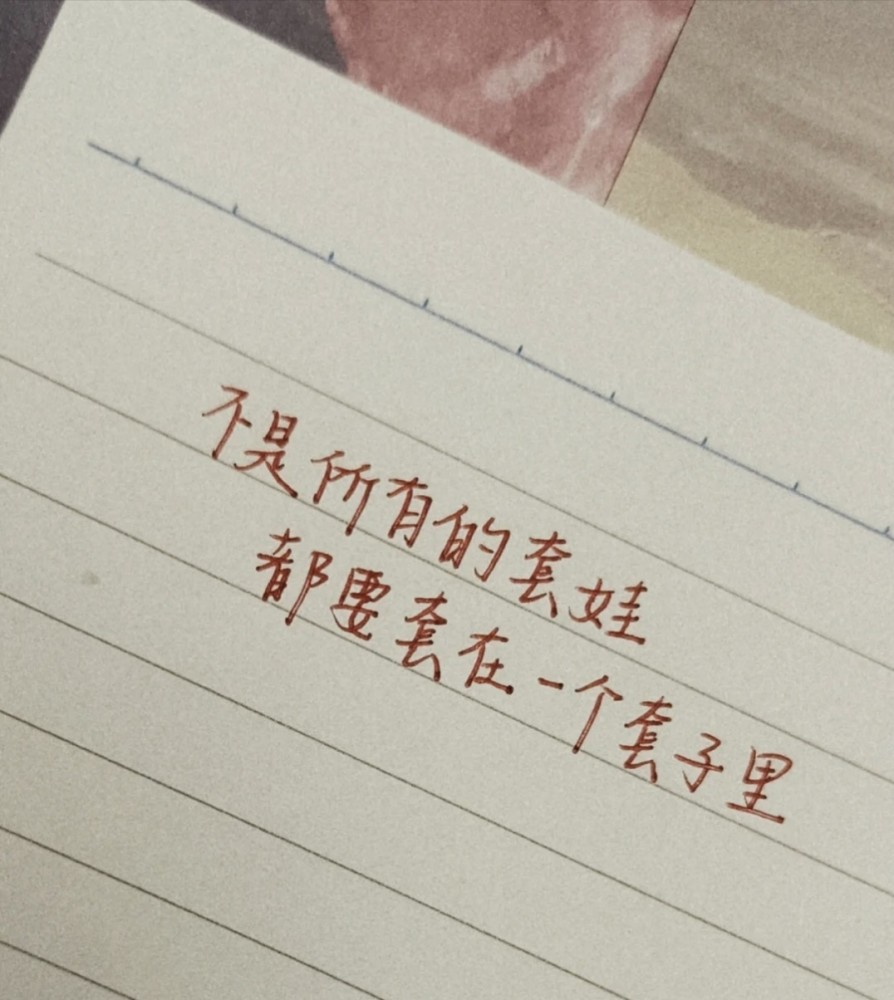 不是所有的套娃
都要套在一个套子里